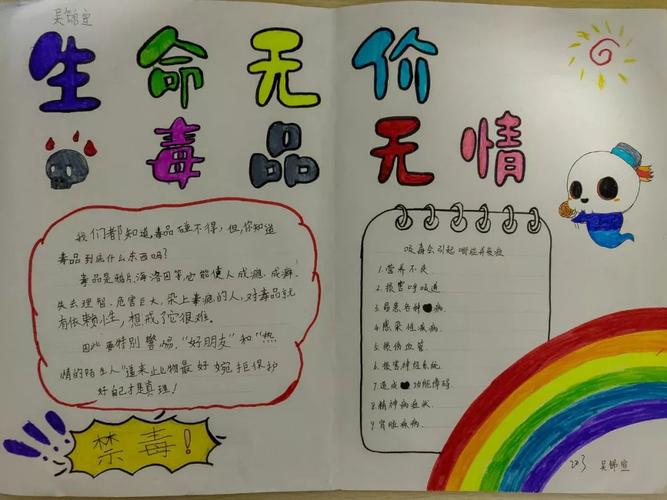 吴锦宣
生命无价
毒品无情
我们都知道毒品碰不得,但,你知道
毒品到底什么东西吗?
毒品是鸦片,海洛因等,它能使人成瘾、成癖、
失去理智、危害巨大,染上毒瘾的人,对毒品就
有依赖性,想戒了它很难。
因此要特别警惕,"好朋友"和"热
情的陌生人"递来止物最好婉拒保护
好自己才是真理!
禁毒!
吸毒会引起哪些并发症
1.营养不良
2.损害呼吸道
3.易患各种病
4.感染性疾病.
5.损伤血管.
6.损害神经系统
7.造成功能障碍
8.精神病症状.
9.肾脏疾病.
223 吴锦宣